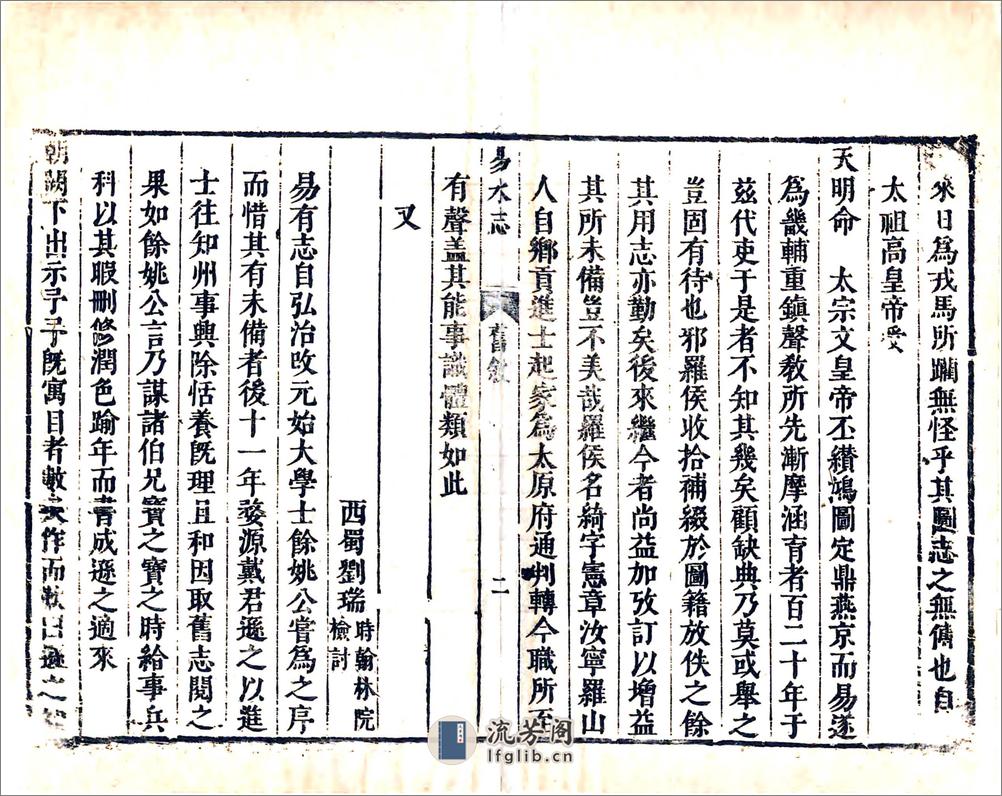 來日為戎馬所躪無怪乎其圖志之無傳也自
太祖高皇帝受
天明命 太宗文皇帝丕纉鴻圖定鼎燕京而易遂
為畿輔重鎮聲教所先漸摩涵育者百二十年于
茲代吏于是者不知其幾矣顧缺典乃莫或舉之
豈固有待也邪羅侯收拾補綴於圖籍放佚之餘
其用志亦勤矣後來繼今者尚益加攷訂以增益
其所未備豈不美哉羅侯名綺字憲章汝寧羅山
人自鄉貢進士起家為太原府通判轉今職所至
易水志 舊敘 二
有聲蓋其能事識體類如此
又
西蜀劉瑞 時翰林院檢討
易有志自弘治改元始大學士餘姚公嘗為之序
而惜其有未備者後十一年婺源戴君遜之以進
士往知州事興除恬養旣理且和因取舊志閱之
果如餘姚公言乃謀諸伯兄寶之寶之時給事兵
科以其暇刪修潤色踰年而書成遜之適來
朝闕下出示予予旣寓目者數 作而 曰遜之
流芳阁
lfglib.cn